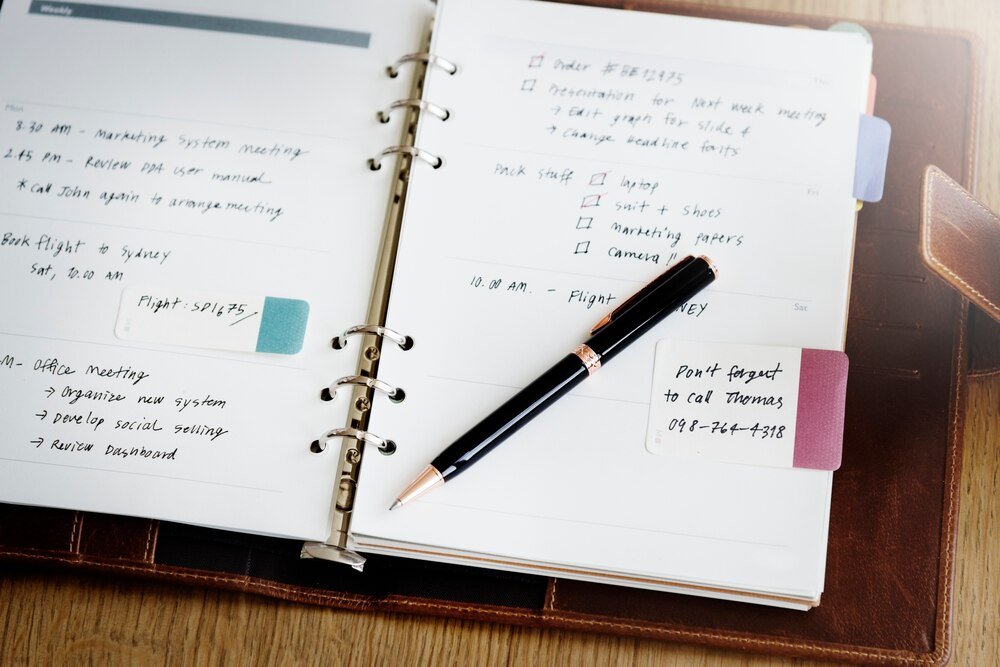 Weekly
Mon
8.30 AM - Marketing System Meeting
2.45 PM - Review DDA user manual
*call John again to arrange meeting
Book flight to Sydney
Sat, 10.00 AM
Flight: SD1675
M- Office meeting
→ Organize new system
→ Develop social selling
→ Review Dashboard
Thu
Order #BE12975
Presentation for Next week meeting
→ Edit graph for slide 4
→ Change headline fonts
Fri
Pack stuff
laptop
suit + shoes
marketing papers
camera !!
Sat
10.00 AM. - Flight NEY
Don't forget
to call Thomas
098-764-4318